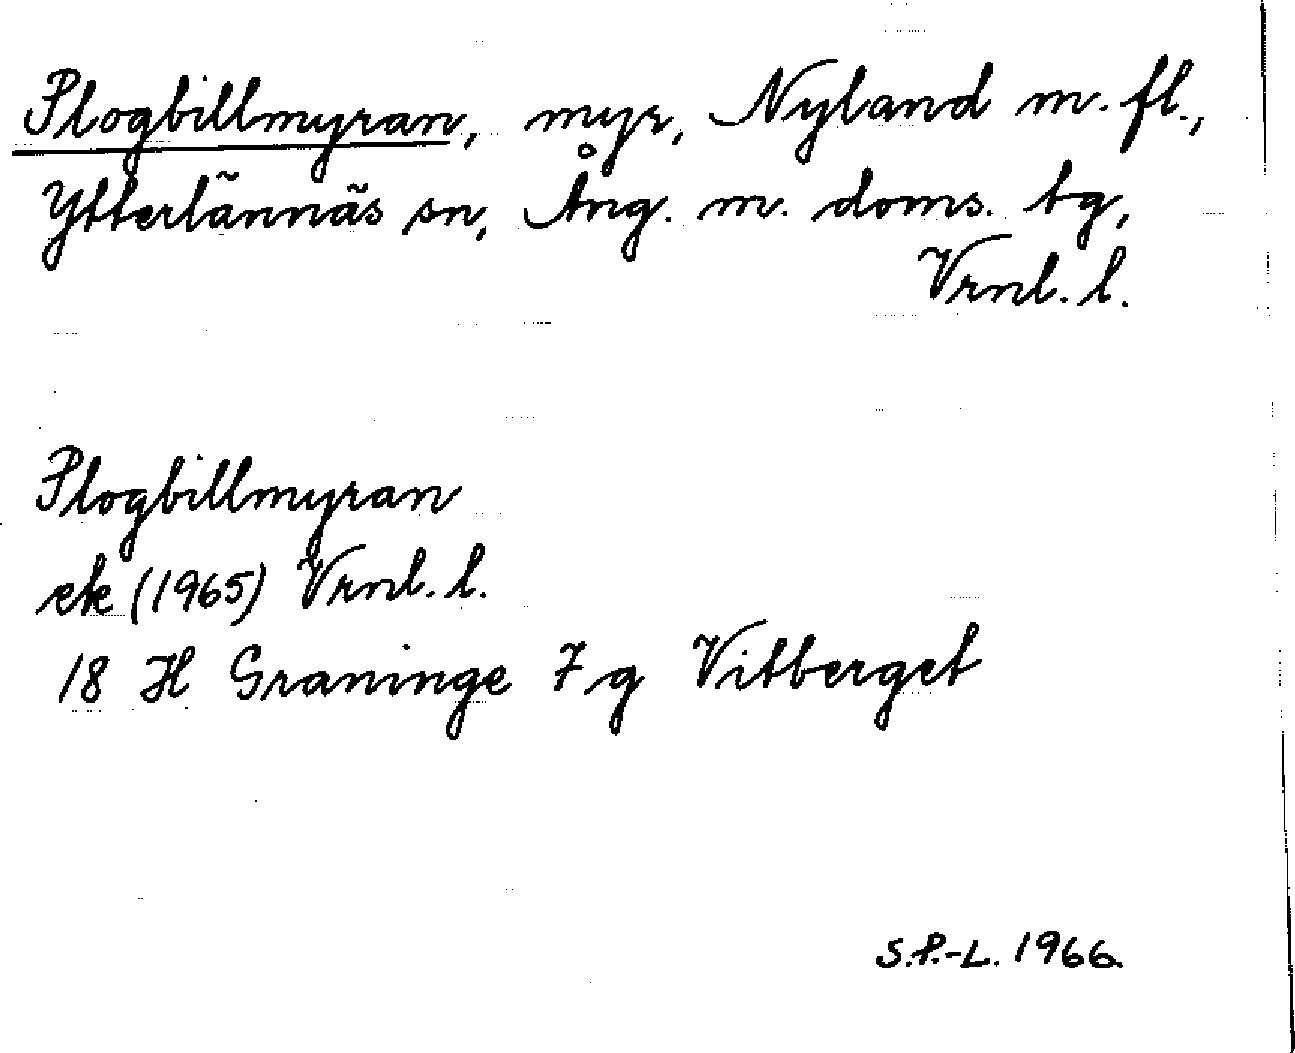 Plogbillmyran, myr, Nyland m. fl.,
Ytterlännäs sn, Ång. m. doms. tg,
Vrnl. l.
Plogbillmyran
ek (1965) Vrnl. l.
18 H Graninge 7 g Vitberget
S.P.-L. 1966.